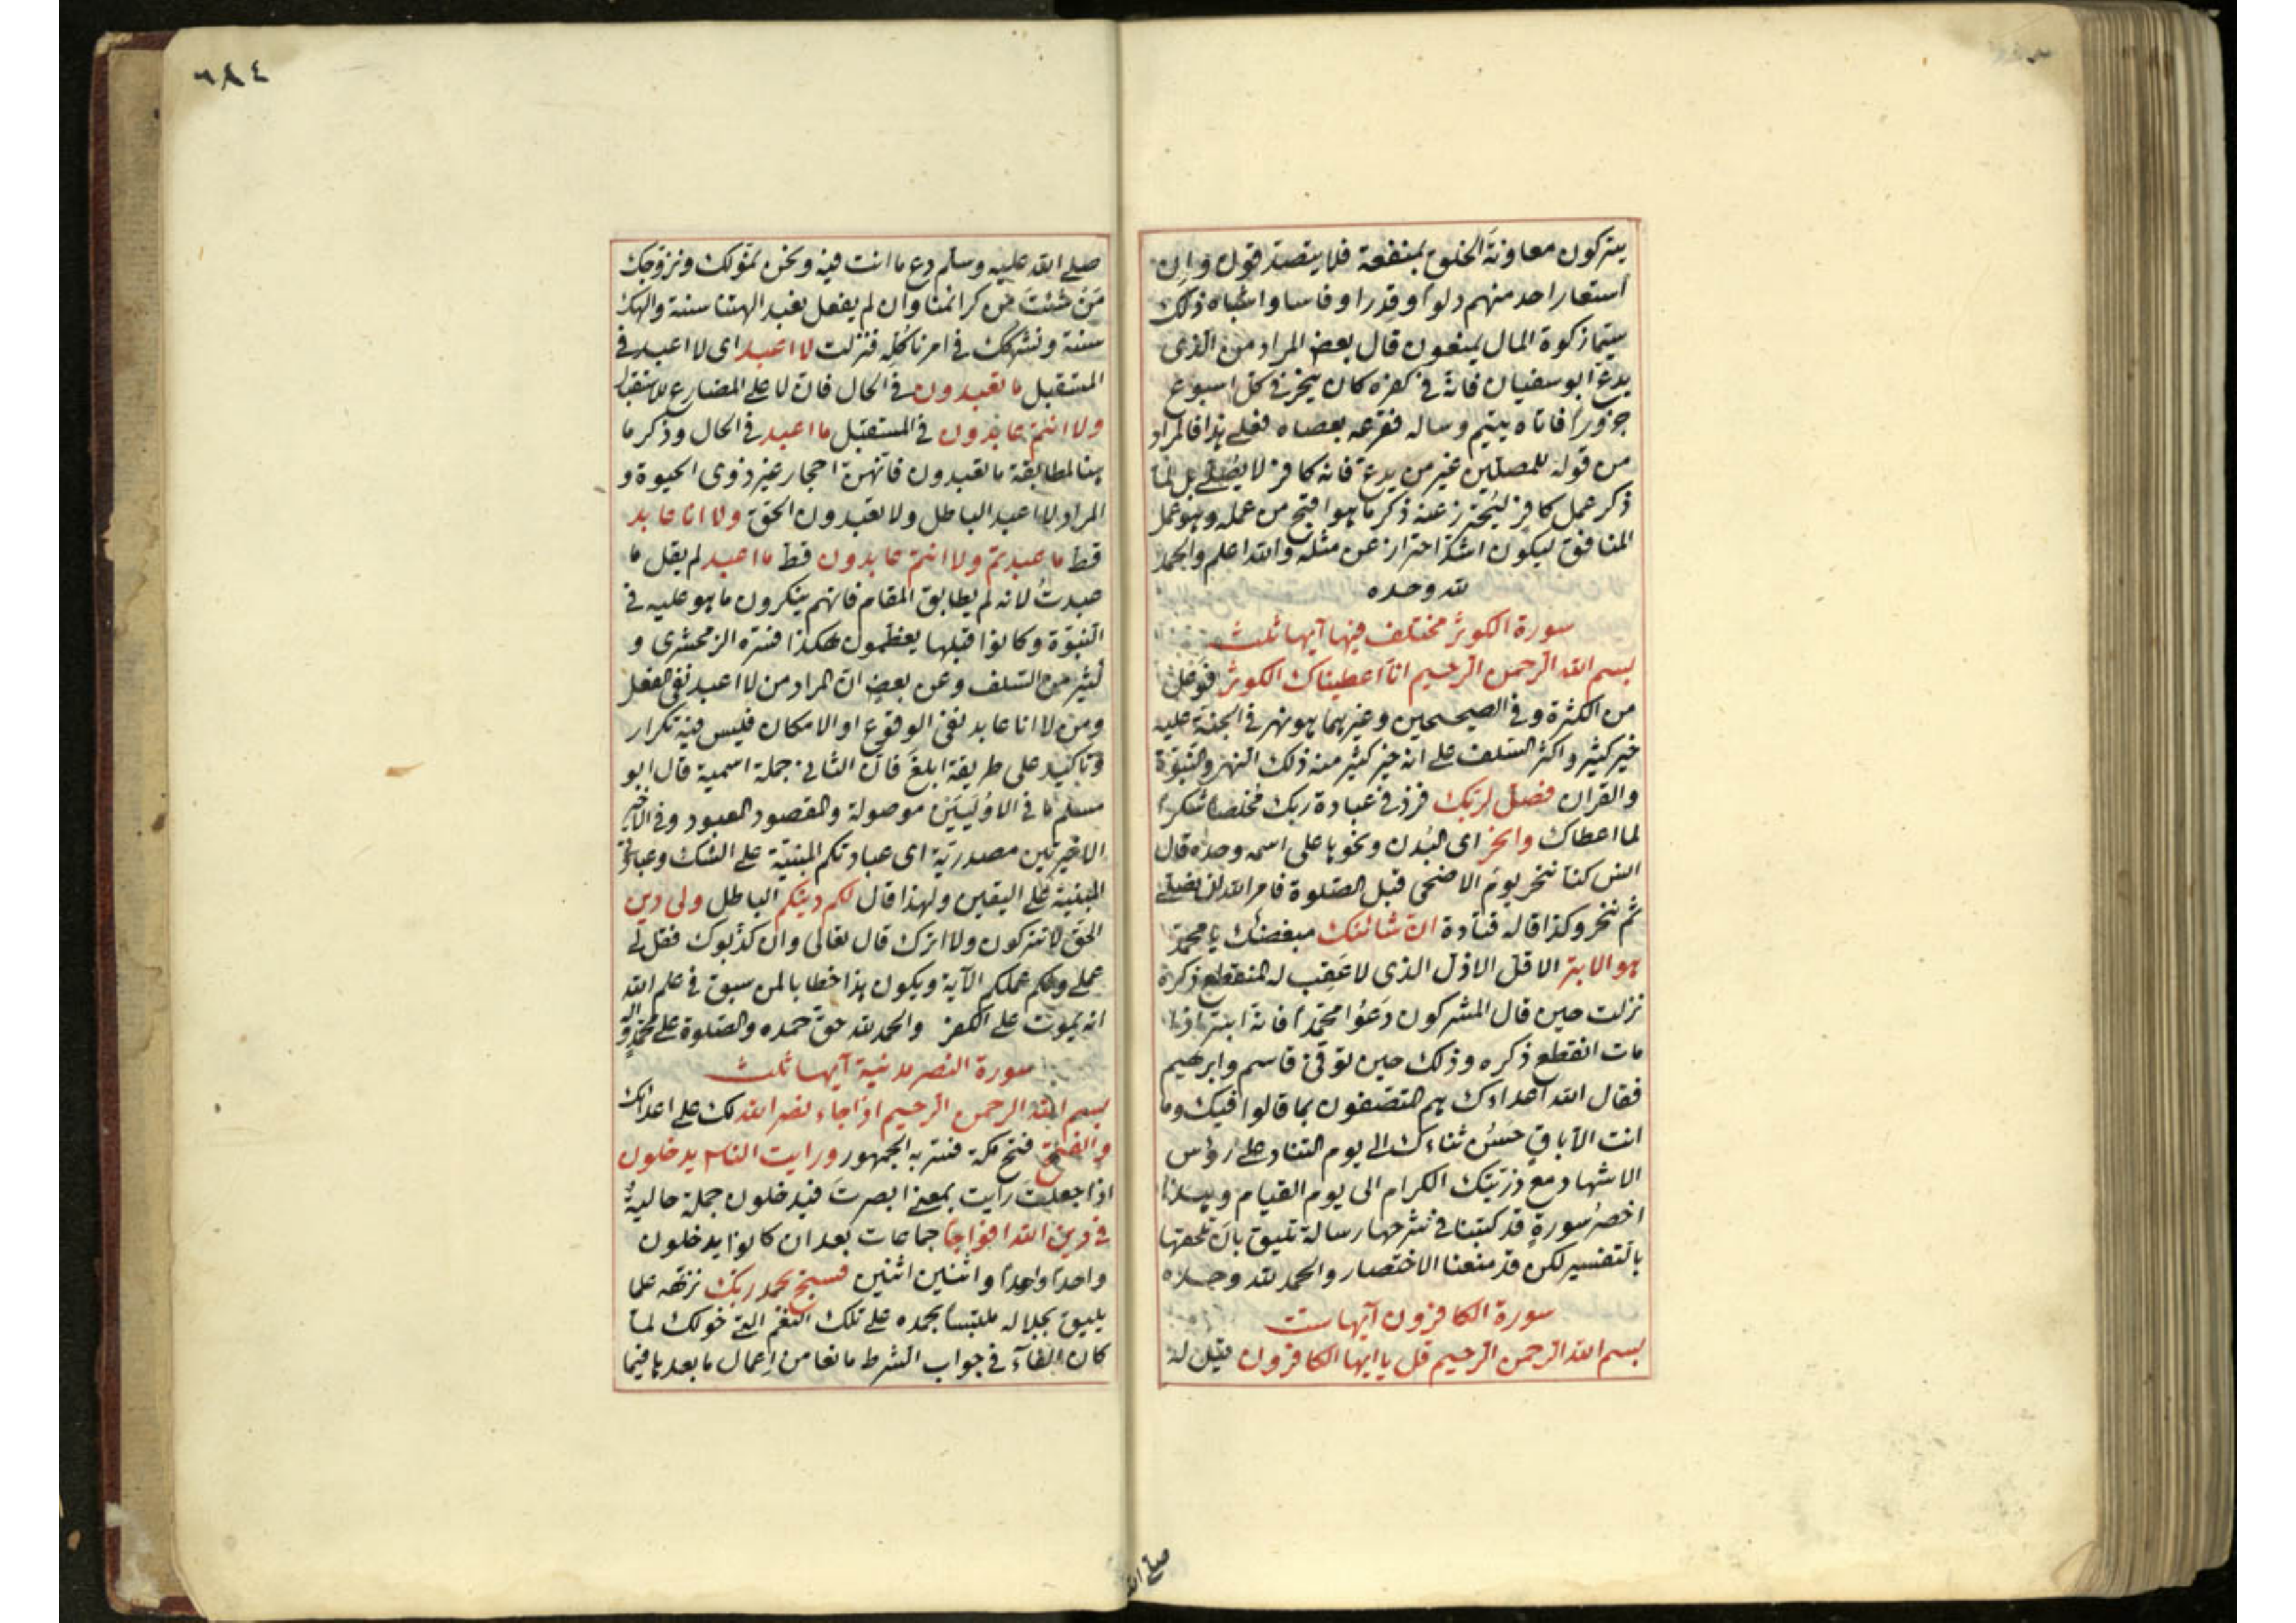 يتركون معاونة الخلق بمنفعة فلا يتصدقون وان
استعار احد منهم دلوا وقدرا وفاسا واشباه ذلك
سيما زكوة المال يمنعون قال بعض المراد من الذى
يدع ابو سفيان فانه فى كفره كان ينحر فى كل اسبوع
جزورا فاتاه يتيم وساله فقرعه بعصاه فعلى هذا فالمراد
من قوله للمصلين غير من يدع فانه كافر لا يصلى بل لما
ذكر عمل كافر ليحترز عنه ذكر ما هو اقبح من عمله وهو عمل
المنافق ليكون اشد احتراز عن مثله والله اعلم والحمد
لله وحده
سورة الكوثر مختلف فيها آيها ثلث
بسم الله الرحمن الرحيم انا اعطيناك الكوثر فوعل
من الكثرة وفى الصحيحين وغيرهما هو نهر فى الجنة عليه
خير كثير واكثر السلف على انه خير كثير منه ذلك النهر والنبوة
والقران فصل لربك فزد فى عبادة ربك مخلصا شكرا
لما اعطاك وانحر اى البدن ونحوها على اسمه وحده قال
انس كنا ننحر يوم الاضحى قبل الصلوة فامر الله ان نصلى
ثم ننحر وكذا قاله قتادة ان شانئك مبغضك يا محمد
هو الابتر الاقل الاذل الذى لا عقب له المنقطع ذكره
نزلت حين قال المشركون دعوا محمدا فانه ابتر اذا
مات انقطع ذكره وذلك حين توفى قاسم وابرهيم
فقال الله اعداءك هم المتصفون بما قالوا فيك وما
انت الا باق حسن ثناءك الى يوم التناد على رؤس
الاشهاد مع ذريتك الكرام الى يوم القيام وهذا
اخصر سورة قد كتبنا فى شرحها رسالة تليق بان تلحقها
بالتفسير لكن قد منعنا الاختصار والحمد لله وحده
سورة الكافرون آيها ست
بسم الله الرحمن الرحيم قل يا ايها الكافرون قيل له
صلى الله
٦٨٤
صلى الله عليه وسلم دع ما انت فيه ونحن نمولك ونزوجك
من شئت من كرائمنا وان لم يفعل نعبد الهتنا سنة والهك
سنة ونشركك فى امرنا كله فنزلت لا اعبد اى لا اعبد فى
المستقبل ما تعبدون فى الحال فان لا على المضارع للاستقبال
ولا انتم عابدون فى المستقبل ما اعبد فى الحال وذكر ما
هنا لمطابقة ما تعبدون فانهن احجار غير ذوى الحيوة و
المراد لا اعبد الباطل ولا تعبدون الحق ولا انا عابد
قط ما عبدتم ولا انتم عابدون قط ما اعبد لم يقل ما
عبدت لانه لم يطابق المقام فانهم ينكرون ما هو عليه فى
النبوة وكانوا قبلها يعظمون هكذا فسره الزمخشرى و
كثير من السلف وعن بعض ان المراد من لا اعبد نفى الفعل
ومن لا انا عابد نفى الوقوع او الامكان فليس فيه تكرار
وتاكيد على طريقة ابلغ فان الثانى جملة اسمية قال ابو
مسلم ما فى الاوليين موصولة والمقصود المعبود وفى
الاخيرتين مصدرية اى عبادتكم المبنية على الشك وعبادتى
المبنية على اليقين ولهذا قال لكم دينكم الباطل ولى دين
الحق لا تتركون ولا اترك قال تعالى وان كذبوك فقل لى
عملى ولكم عملكم الآية ويكون هذا خطابا لمن سبق فى علم الله
انه يموت على الكفر والحمد لله حق حمده والصلوة على محمد وآله
سورة النصر مدنية آيها ثلث
بسم الله الرحمن الرحيم اذا جاء نصر الله لك على اعدائك
والفتح فتح مكة فسر به الجمهور ورايت الناس يدخلون
اذا جعلت رايت بمعنى ابصرت فيدخلون جملة حالية
فى دين الله افواجا جماعات بعد ان كانوا يدخلون
واحدا واحدا واثنين اثنين فسبح بحمد ربك نزهه عما
يليق بجلاله ملتبسا بحمده على تلك النعم التى خولك لما
كان الفآء فى جواب الشرط مانعا من اعمال ما بعدها فيما